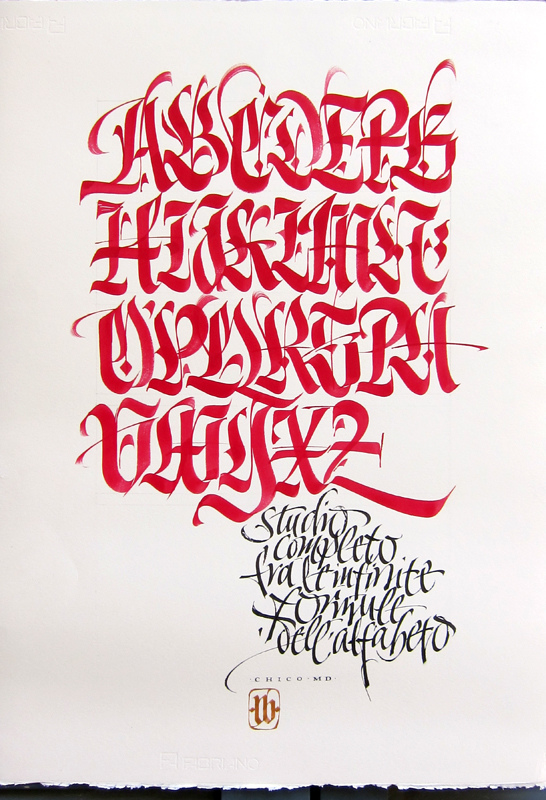 FABRIANO
ABCDEFG
HIJKLMN
OPQRSTU
VWYXZ
studio
completo
fra le infinite
formule
dell'alfabeto
·CHICO·MD·
FABRIANO